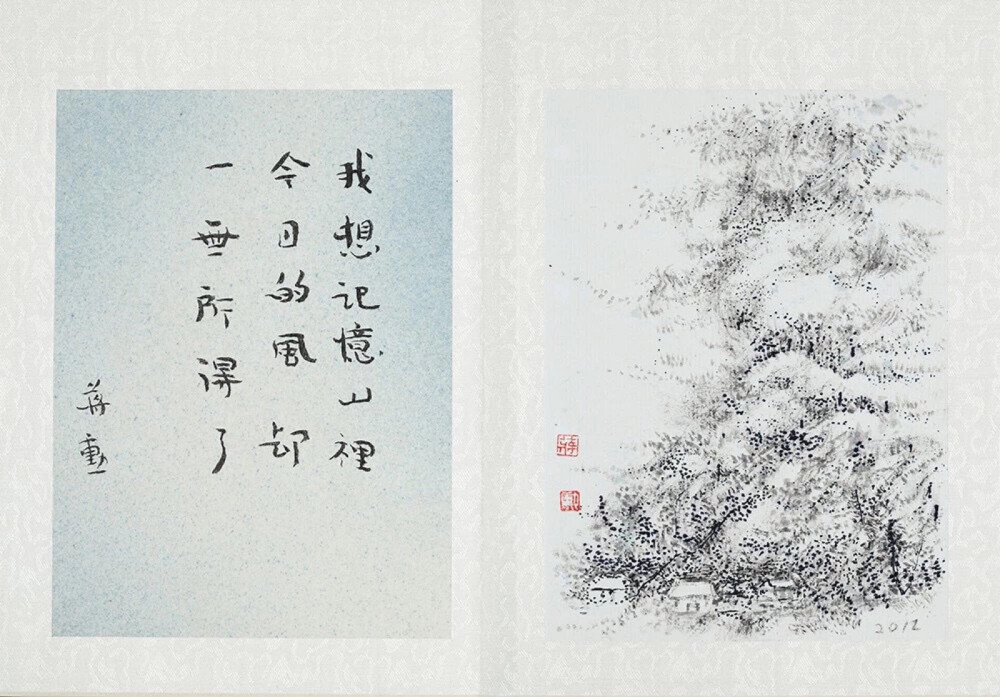 我想记憶山裡
今日的風却
一無所得了
蒋勳
2012